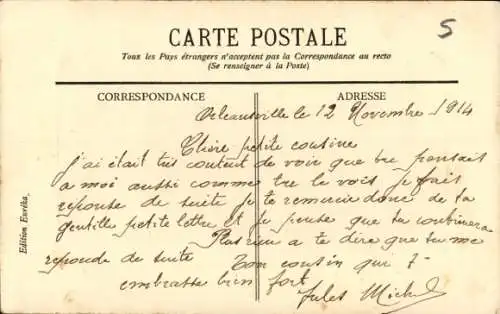 5
CARTE POSTALE
Tous les Pays étrangers n'acceptent pas la Correspondance au recto
(Se renseigner à la Poste)
CORRESPONDANCE
ADRESSE
Orléansville le 12 Novembre 1914
Chère petite cousine
j'ai était très content de voir que tu pensait
a moi aussi comme tu le vois je fait
reponse de suite je te remercie donc de ta
gentille petite lettre et je pense que tu continuera
Plus rien a te dire que tu me
reponde de suite Ton cousin qui t
embrasse bien fort
Jules Michel
Edition Eurêka.